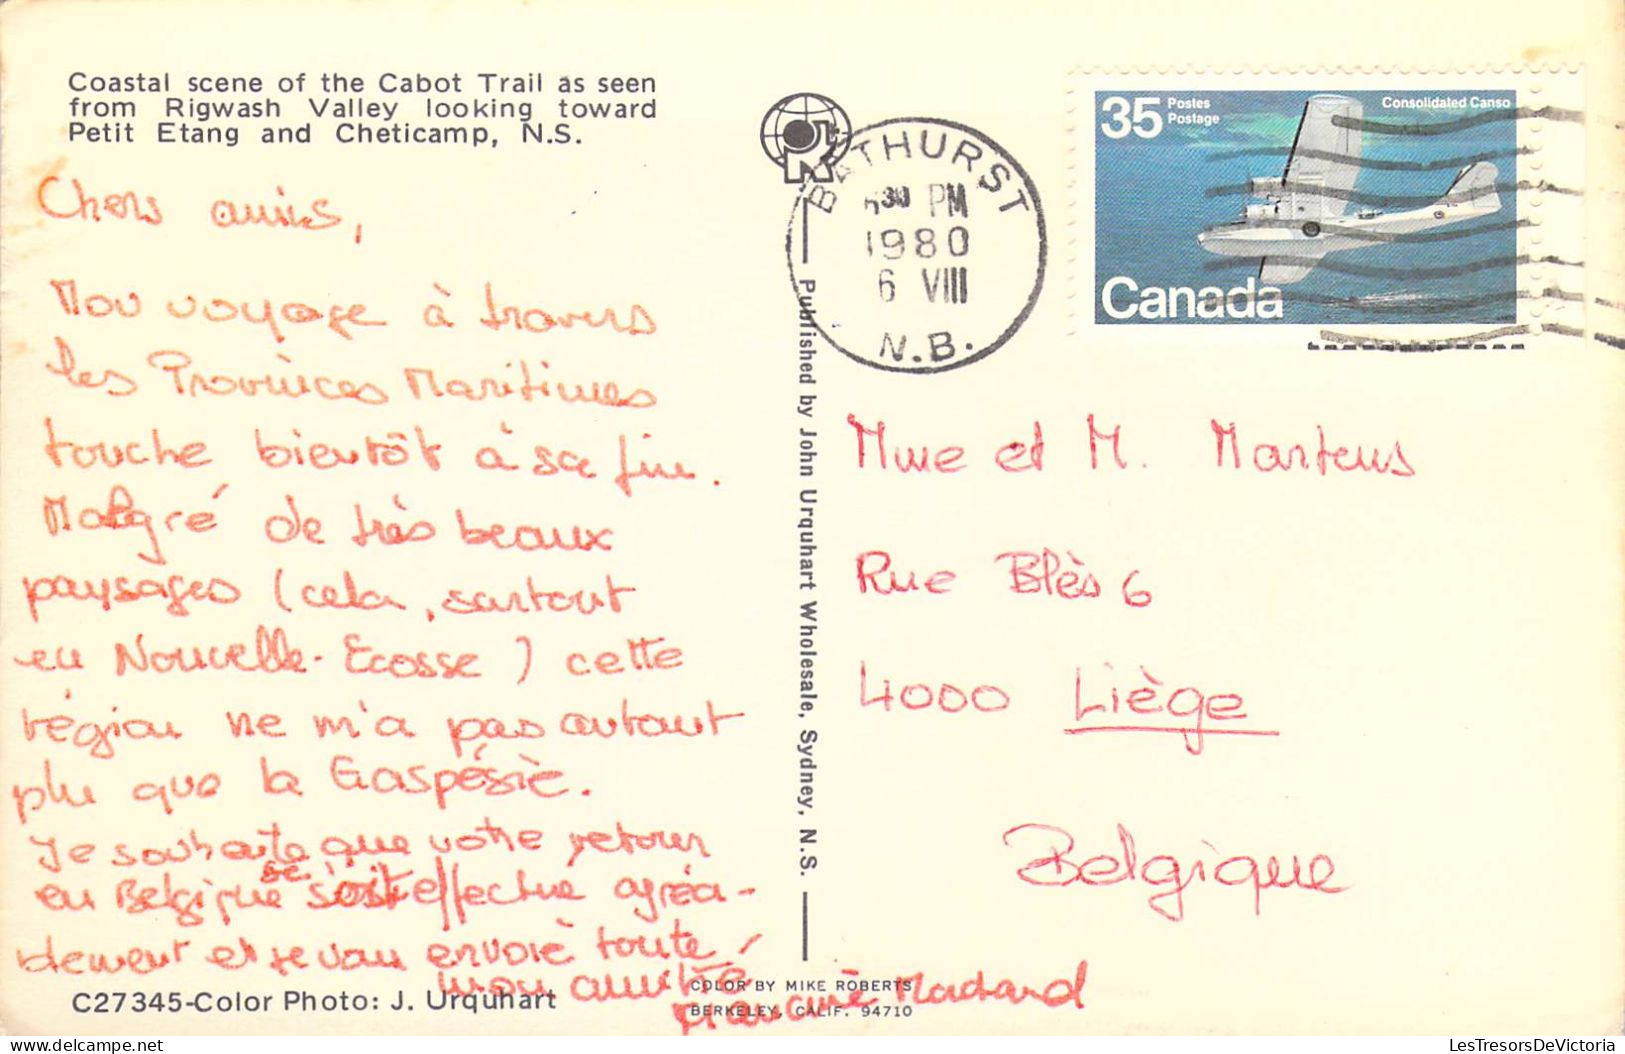 Coastal scene of the Cabot Trail as seen
from Rigwash Valley looking toward
Petit Etang and Cheticamp, N.S.
Chers amis,
Mon voyage à travers
les Provinces Maritimes
touche bientôt à sa fin.
Malgré de très beaux
paysages (cela, surtout
en Nouvelle-Ecosse) cette
région ne m'a pas autant
plu que la Gaspésie.
Je souhaite que votre retour
en Belgique se soit effectué agréa-
blement et je vous envoie toute
mon amitié
Francine
C27345-Color Photo: J. Urquhart
Published by John Urquhart Wholesale, Sydney, N.S.
COLOR BY MIKE ROBERTS
BERKELEY, CALIF. 94710
BATHURST
30 PM
1980
6 VIII
N.B.
35 Postes
Postage
Consolidated Canso
Canada
Mme et M. Martens
Rue Blès 6
4000 Liège
Belgique
LesTresorsDeVictoria